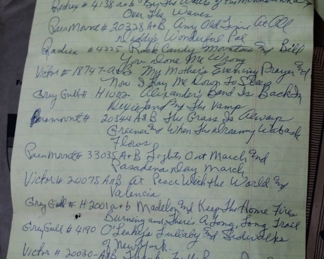 Over The Waves
Paramount # 20328 A+B Any Old Time At All
Daddy's Wonderful Pal
Radiex # 4225 Rock Candy Mountain and Bill
You Done Me Wrong
Victor # 18747-A+B My Mother's Evening Prayer and
Now I Lay Me Down To Sleep
Grey Gull # H1002 Alexander's Band Is Back In
Dixieland and The Vamp
Paramount # 20144 A+B The Grass Is Always
Greener and When The Dreamy Wabash
Flows
Paramount # 33035 A+B Lights Out March and
Pasadena Day March
Victor # 20075 A+B At Peace With the World and
Valencia
Grey Gull # H2001 a+b Madelon and Keep The Home Fires
Burning and There's A Long, Long Trail
Grey Gull # 4190 O'Leary's Lullaby and Sidewalks
of New York